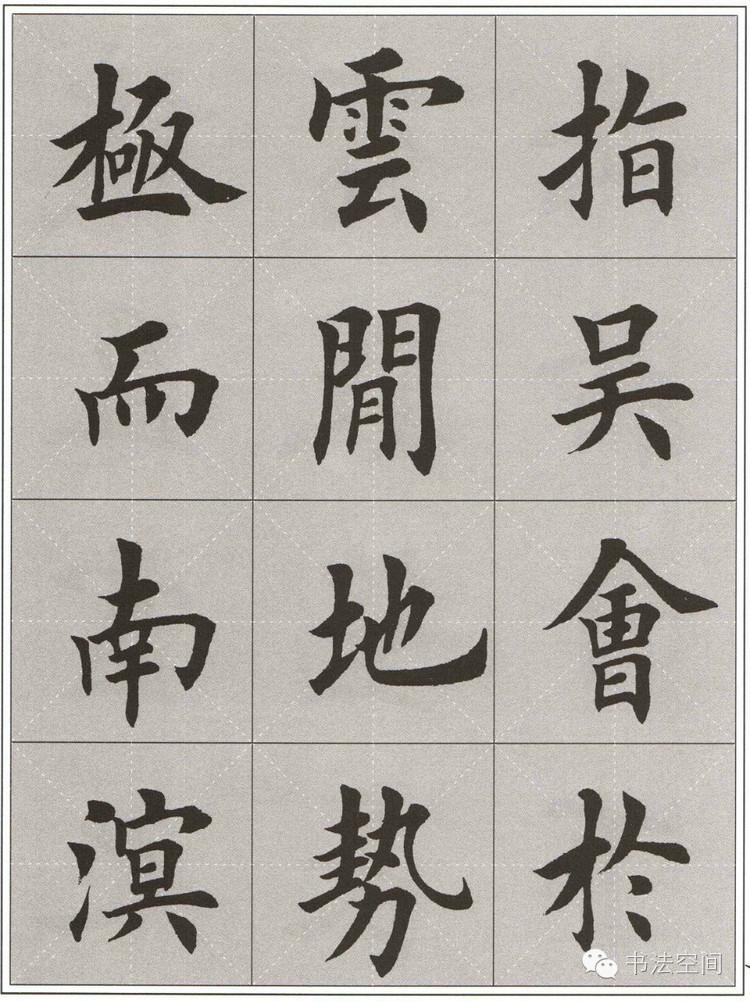 指吴會於
雲間地勢
極而南溟
书法空间